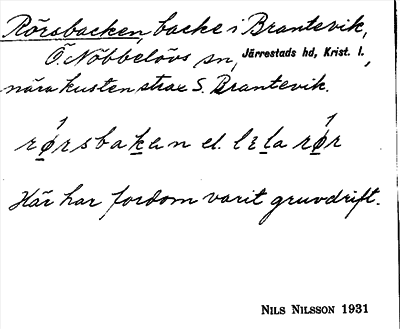 Rörsbacken, backe i Brantevik,
Ö. Nöbbelövs sn, Järrestads hd, Krist. l.,
nära kusten strax S. Brantevik.
rǿ̲rsbak̲an el. lɛl̲a rǿ̲r
Här har fordom varit gruvdrift.
NILS NILSSON 1931